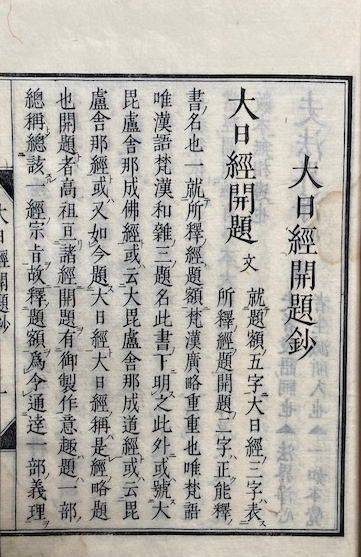 大日經開題鈔
大日經開題 文 就題額五字大日經三字表
所釋經題開題二字正能釋
書名也一就所釋經題額梵漢廣略重重也唯梵語
唯漢語梵漢和雜三題名此書下明之此外或號大
毘盧舍那成佛經或云大毘盧舍那成道經或云毘
盧舍那經或又如今題大日經大日經稱是經略題
也開題者高祖於諸經開題有御製作意趣題一部
總稱總該一經宗旨故釋題額爲令通達一部義理
大日經開題鈔